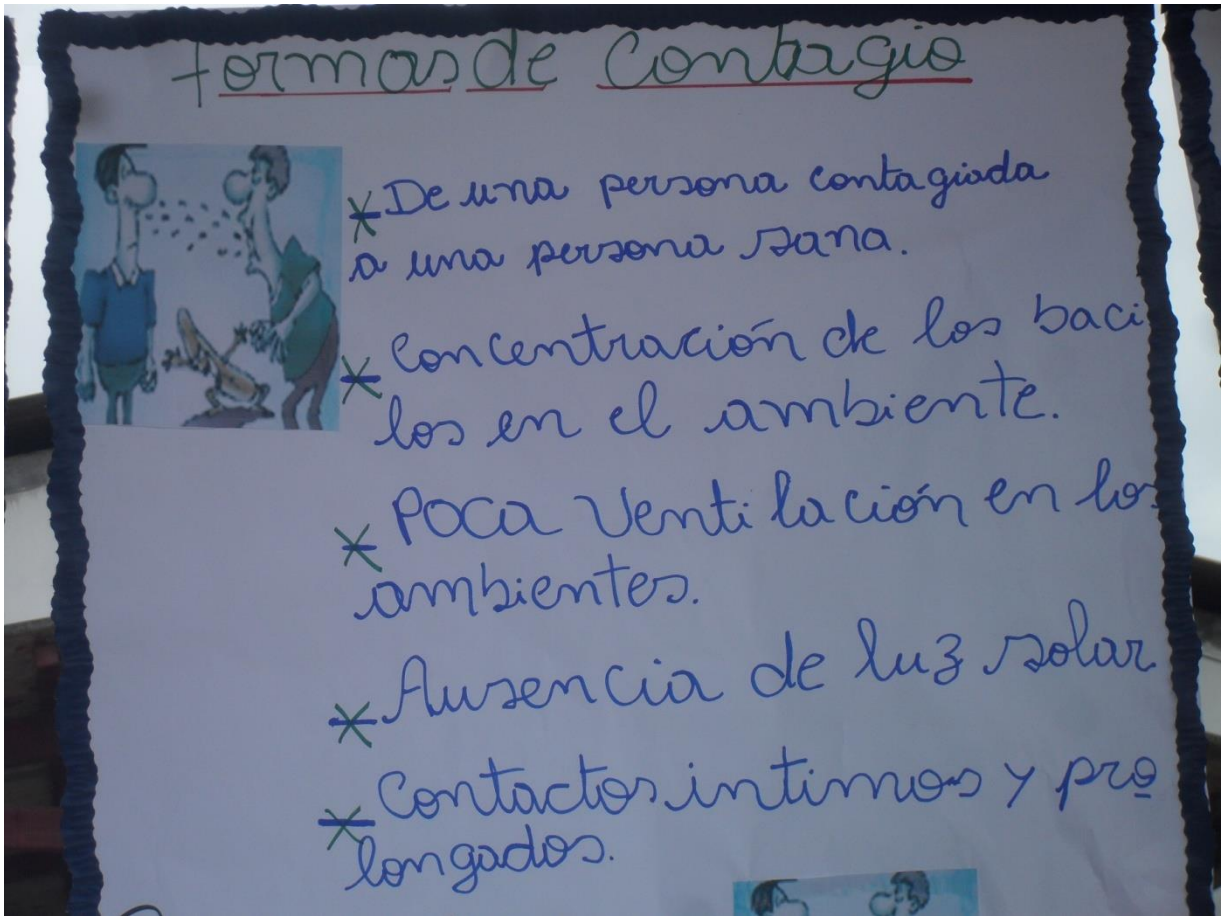 Formas de Contagio
De una persona contagiada
a una persona sana.
Concentración de los baci
los en el ambiente.
Poca Ventilación en los
ambientes.
Ausencia de luz solar
Contactos intimos y pro
longados.